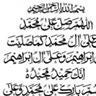 بسم الله الرحمن الرحيم
اللهم صل على محمد
وعلى ال محمد كما صليت
على ابراهيم وعلى ال ابراهيم
انك حميد مجيد
بارك على محمد وعلى